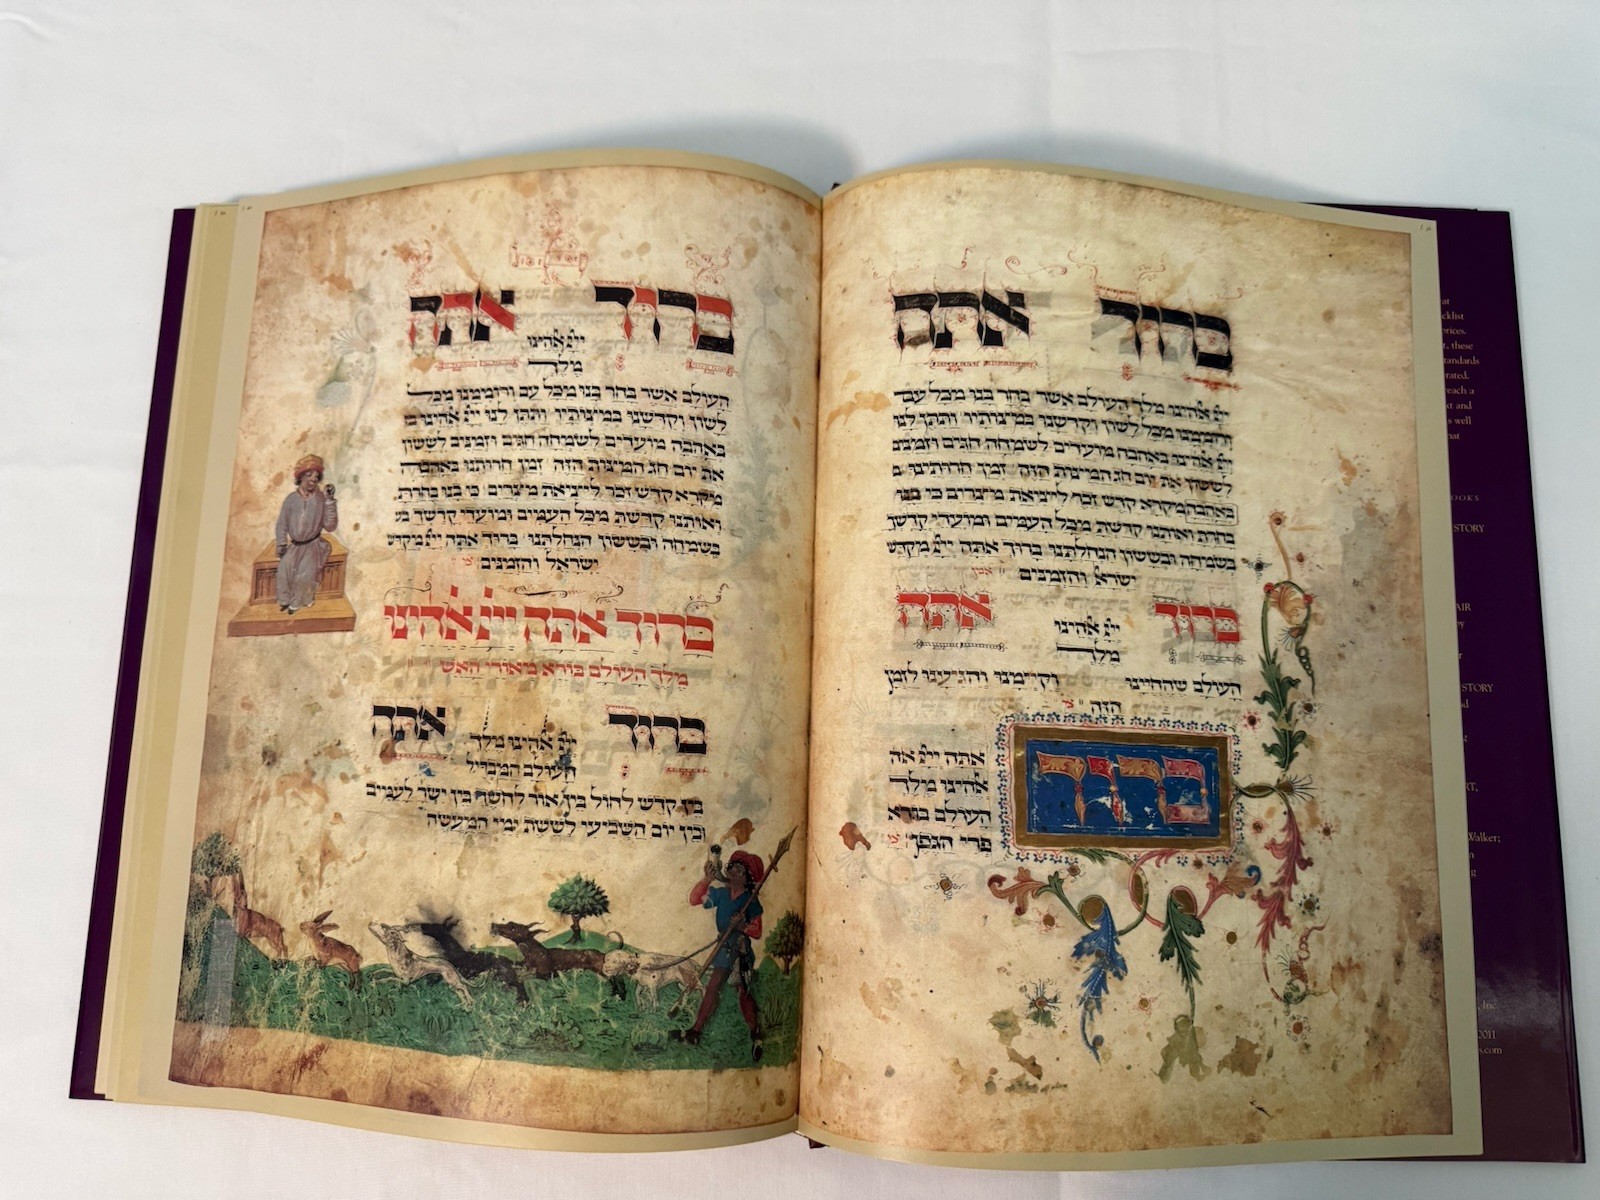 ברוך אתה
ייי אלהינו מלך העולם אשר בחר בנו מכל עם
ורוממנו מכל לשון וקדשנו במצותיו ותתן לנו
ייי אלהינו באהבה מועדים לשמחה חגים וזמנים
לששון את יום חג המצות הזה זמן חרותינו ב
באהבה מקרא קדש זכר ליציאת מצרים כי בנו
בחרת ואותנו קדשת מכל העמים ומועדי קדשך
בשמחה ובששון הנחלתנו ברוך אתה ייי מקדש
ישראל והזמנים אמן
ברוך אתה
ייי אלהינו
מלך
העולם שהחיינו וקיימנו והגיענו לזמן
הזה
ברוך
אתה ייי אה
אלהינו מלך
העולם בורא
פרי הגפן
ברוך אתה
ייי אלהינו
מלך
העולם אשר בחר בנו מכל עם ורוממנו מכל
לשון וקדשנו במצותיו ותתן לנו ייי אלהינו
באהבה מועדים לשמחה חגים וזמנים לששון
את יום חג המצות הזה זמן חרותנו באהבה
מקרא קדש זכר ליציאת מצרים כי בנו בחרת
ואותנו קדשת מכל העמים ומועדי קדשך
בשמחה ובששון הנחלתנו ברוך אתה ייי מקדש
ישראל והזמנים
ברוך אתה ייי אלהינו
מלך העולם בורא מאורי האש
ברוך אתה
ייי אלהינו מלך
העולם המבדיל
בין קדש לחול בין אור לחשך בין ישר לעמים
ובין יום השביעי לששת ימי המעשה
at
cklist
prices.
t, these
standards
rated.
reach a
xt and
s well
hat
OOKS
STORY
AIR
by
STORY
nd
RT,
Walker;
Inc
2011
s.com